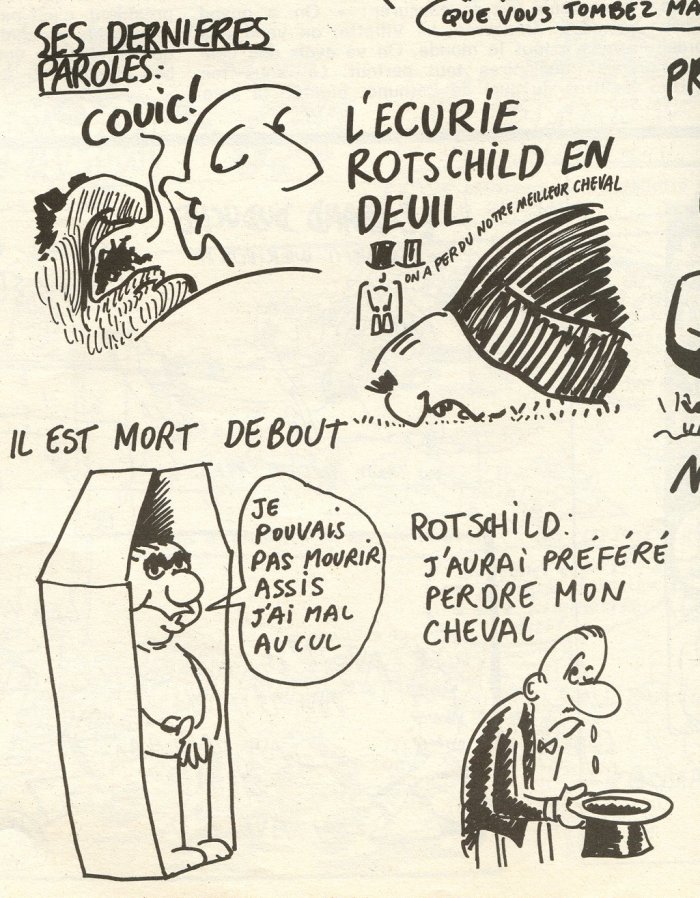 QUE VOUS TOMBEZ MA
SES DERNIERES
PAROLES:
COUIC!
L'ECURIE
ROTSCHILD EN
DEUIL
ON A PERDU NOTRE MEILLEUR CHEVAL
PR
IL EST MORT DEBOUT
JE
POUVAIS
PAS MOURIR
ASSIS
J'AI MAL
AU CUL
ROTSCHILD:
J'AURAI PRÉFÉRÉ
PERDRE MON
CHEVAL